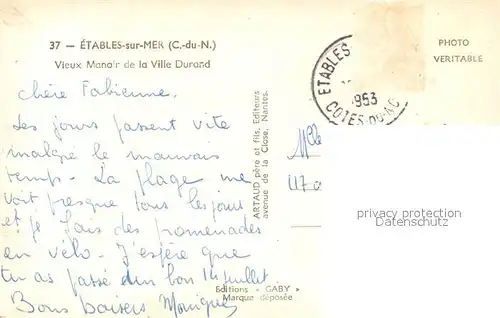 37 — ÉTABLES-sur-MER (C.-du-N.)
Vieux Manoir de la Ville Durand
PHOTO
VERITABLE
ETABLES
1953
COTES-DU-
Chère Fabienne.
Les jours passent vite
malgré le mauvais
temps - La plage me
voit presque tous les jours
et je fais des promenades
en vélo. J'espère que
tu as passé un bon 14 juillet.
Bons baisers Monique
ARTAUD père et fils, Editeurs
avenue de la Close, Nantes.
Editions « GABY »
Marque déposée
Mlle
117
privacy protection
for AnsichtskartenVersand.com